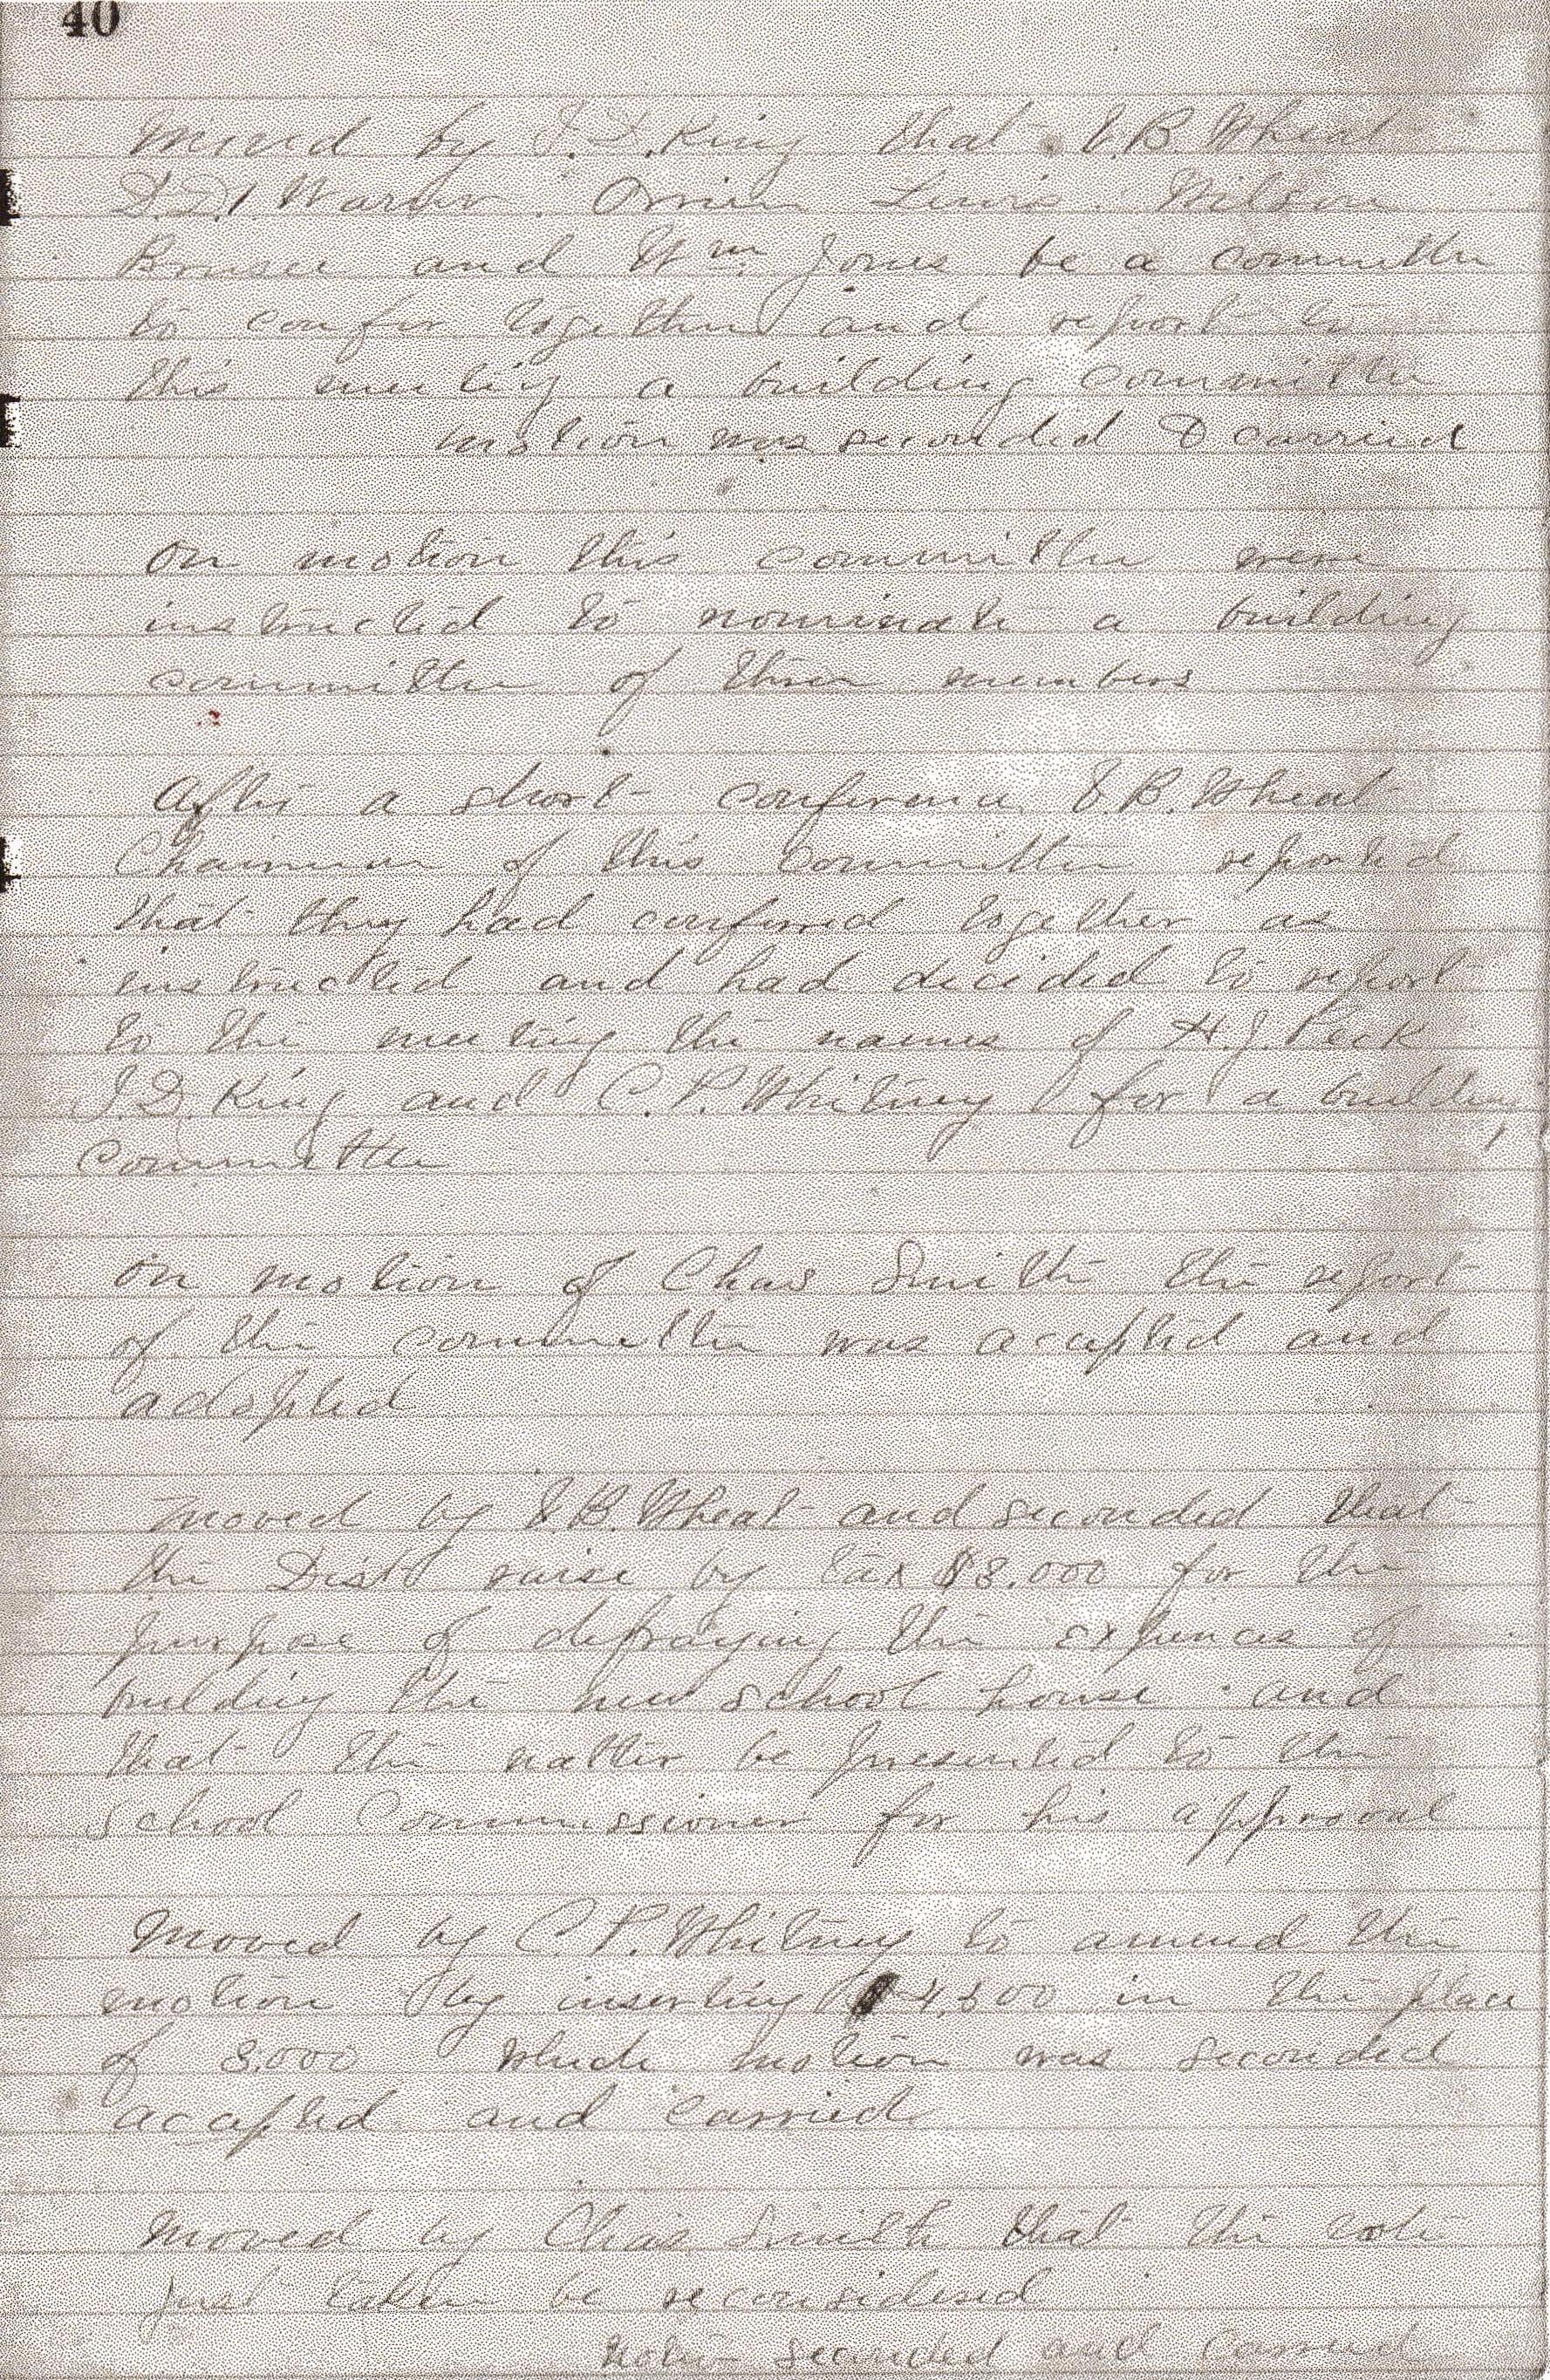 40
Moved by I. D. King that E. B. Wheat
D. D. Warner. Orrien Lewis. Wilson
and Wm. Jones be a committee
to confer together and report to
this meeting a building committee
motion was seconded & carried
On motion this committee were
instructed to nominate a building
committee of three members
After a short conference E. B. Wheat
Chairman of this committee reported
that they had conferred together as
instructed and had decided to report
to the meeting the names of H. J. Peck
I. D. King and C. P. Whitney for a building
committee
On motion of Chas Smith the report
of the committee was accepted and
adopted
Moved by E. B. Wheat and seconded that
the Dist raise by tax $3.000 for the
purpose of defraying the expences of
building the new school house and
that the matter be presented to the
School Commissioner for his approval
Moved by C. P. Whitney to amend the
motion by inserting $4,500 in the place
of 3.000 which motion was seconded
accepted and carried
Moved by Chas Smith that the vote
just taken be reconsidered
motion seconded and carried